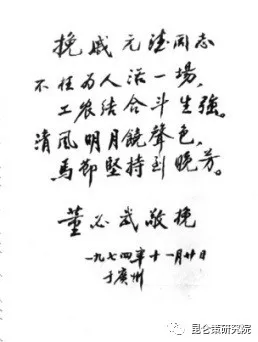 挽戚元德同志
不枉为人活一場，
工农结合斗生強。
清风明月饒聲色，
馬郷堅持到晚芳。
董必武敬挽
一九七四年十一月廿日
于廣州
昆仑策研究院